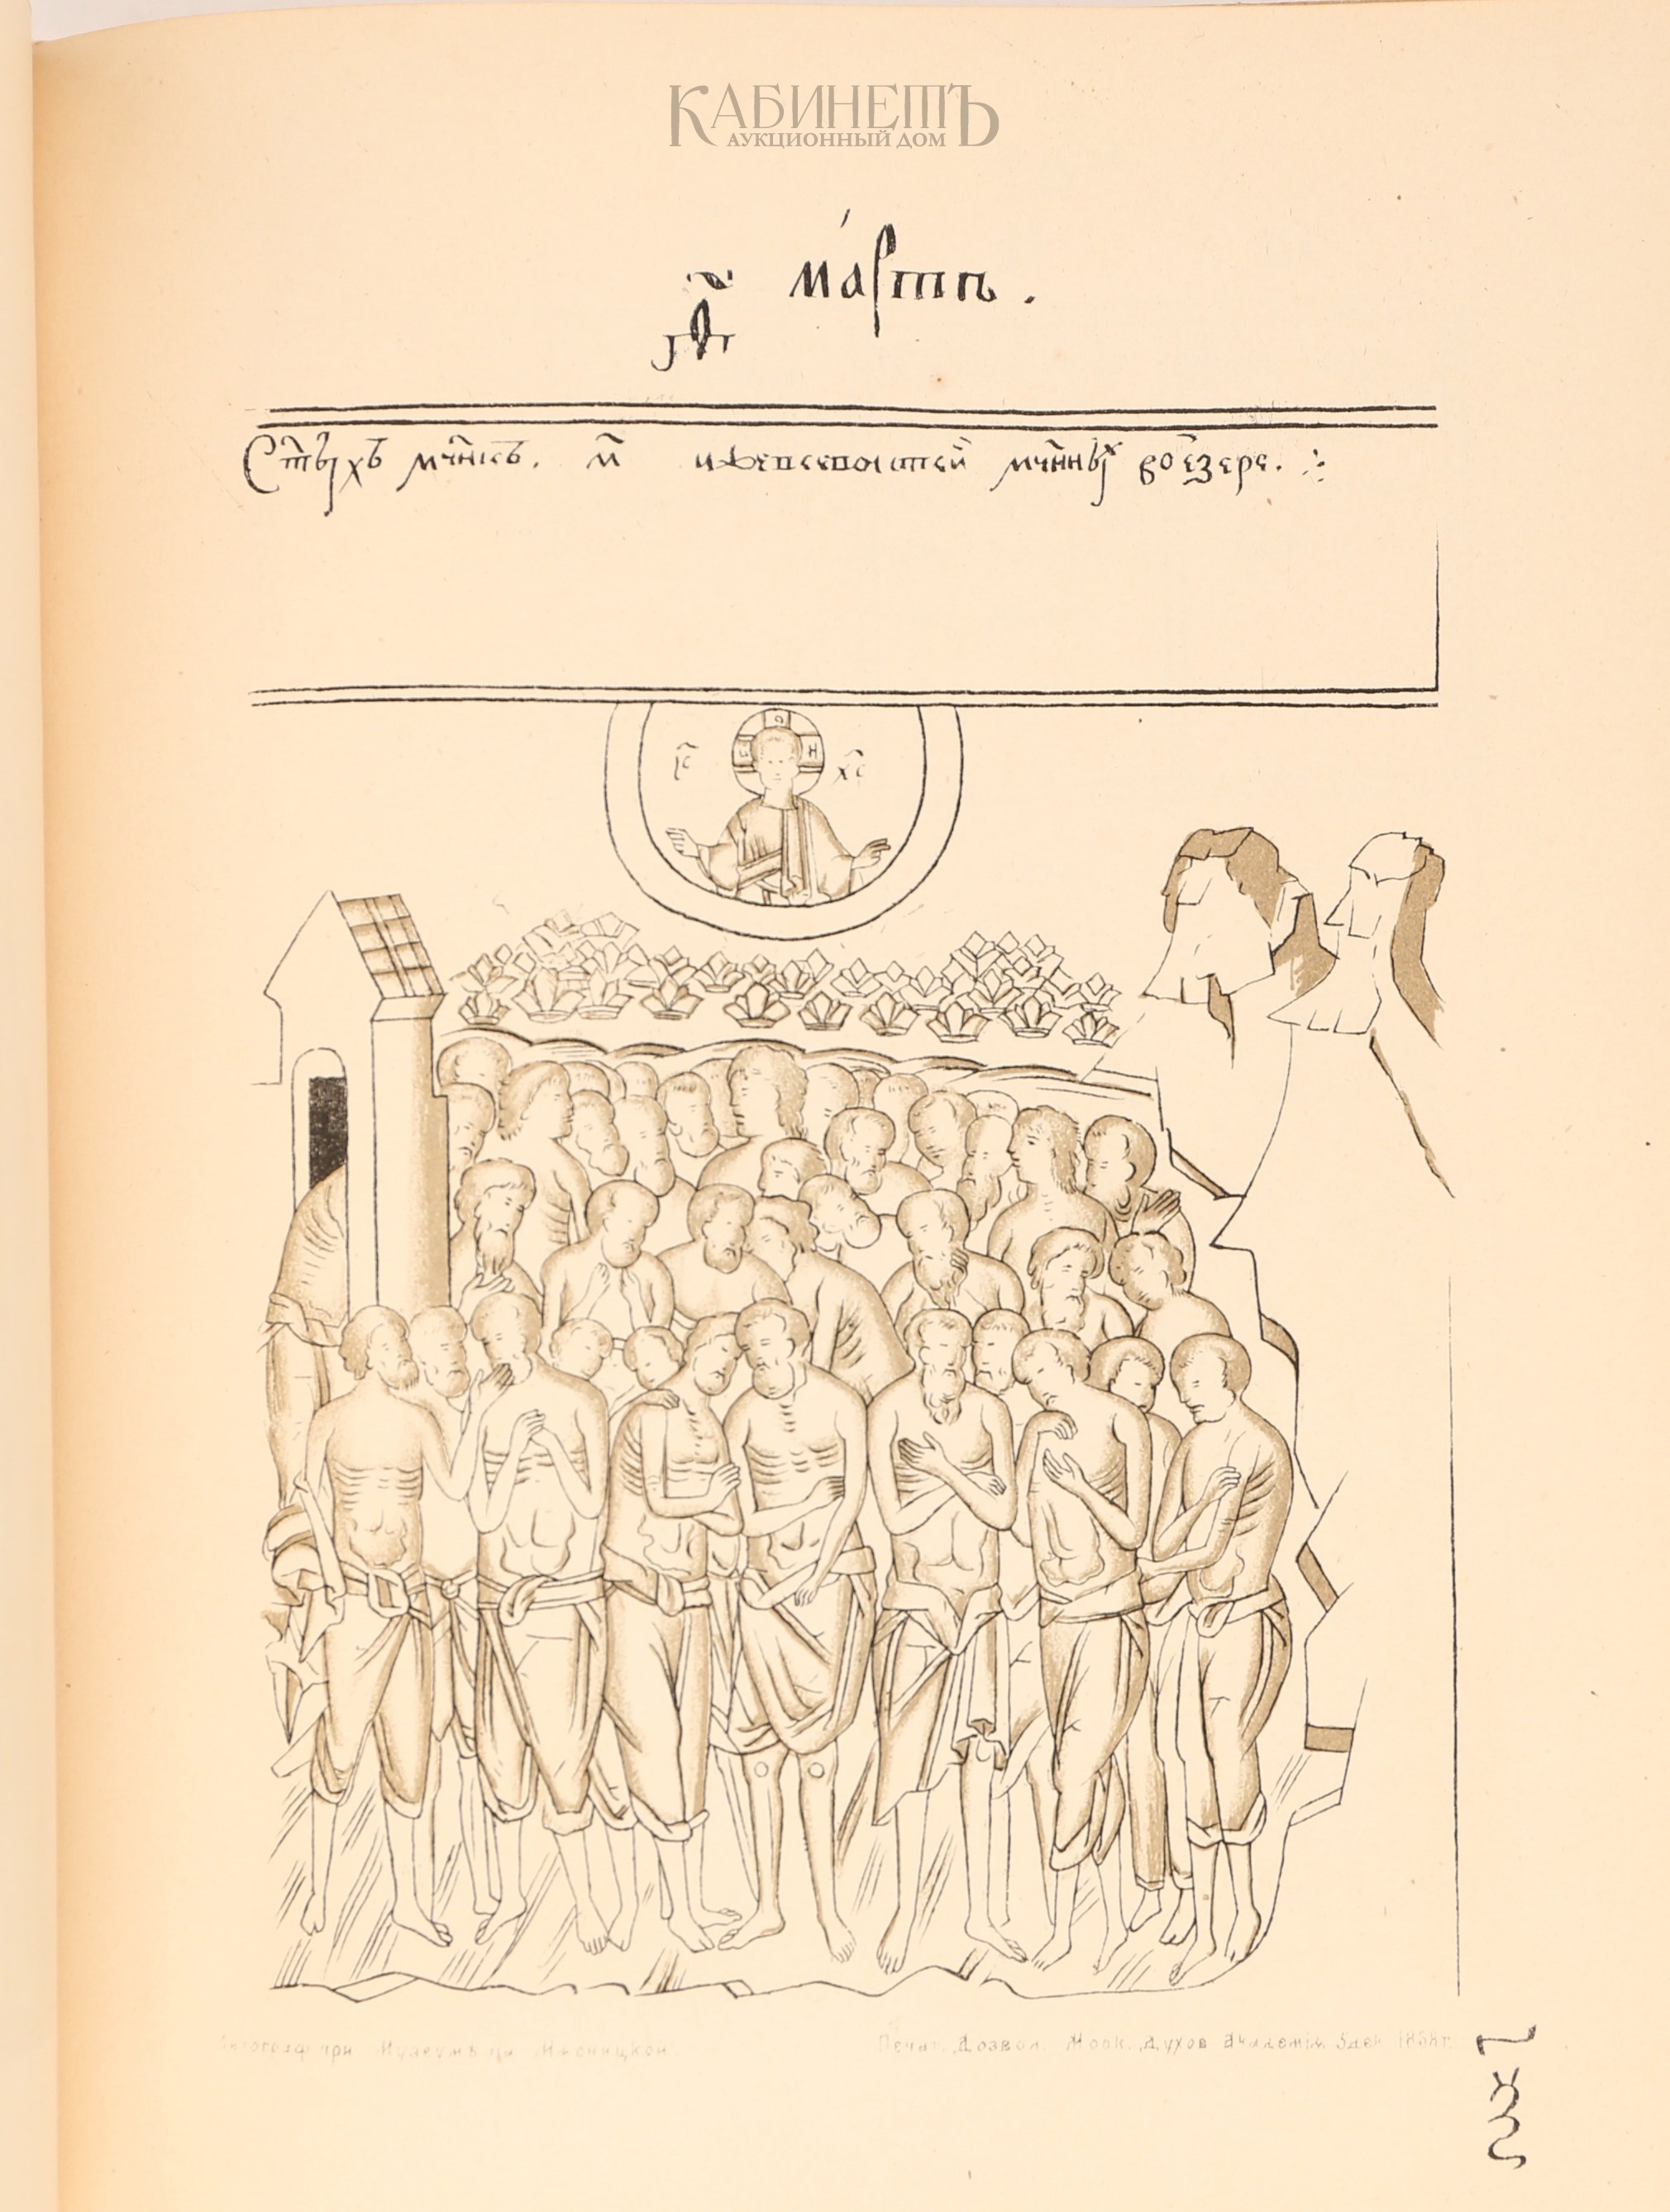 КАБИНЕТЪ
АУКЦИОННЫЙ ДОМ
мартъ.
Ст҃ыхъ мч҃нкъ. м҃ ижевсевастей мч҃нныⷯ воезере.
І҃С Х҃С
Литограф при Музеумѣ на Мясницкой.
Печат. Дозвол. Моск. Духов Академія 5 дек 1868 г.